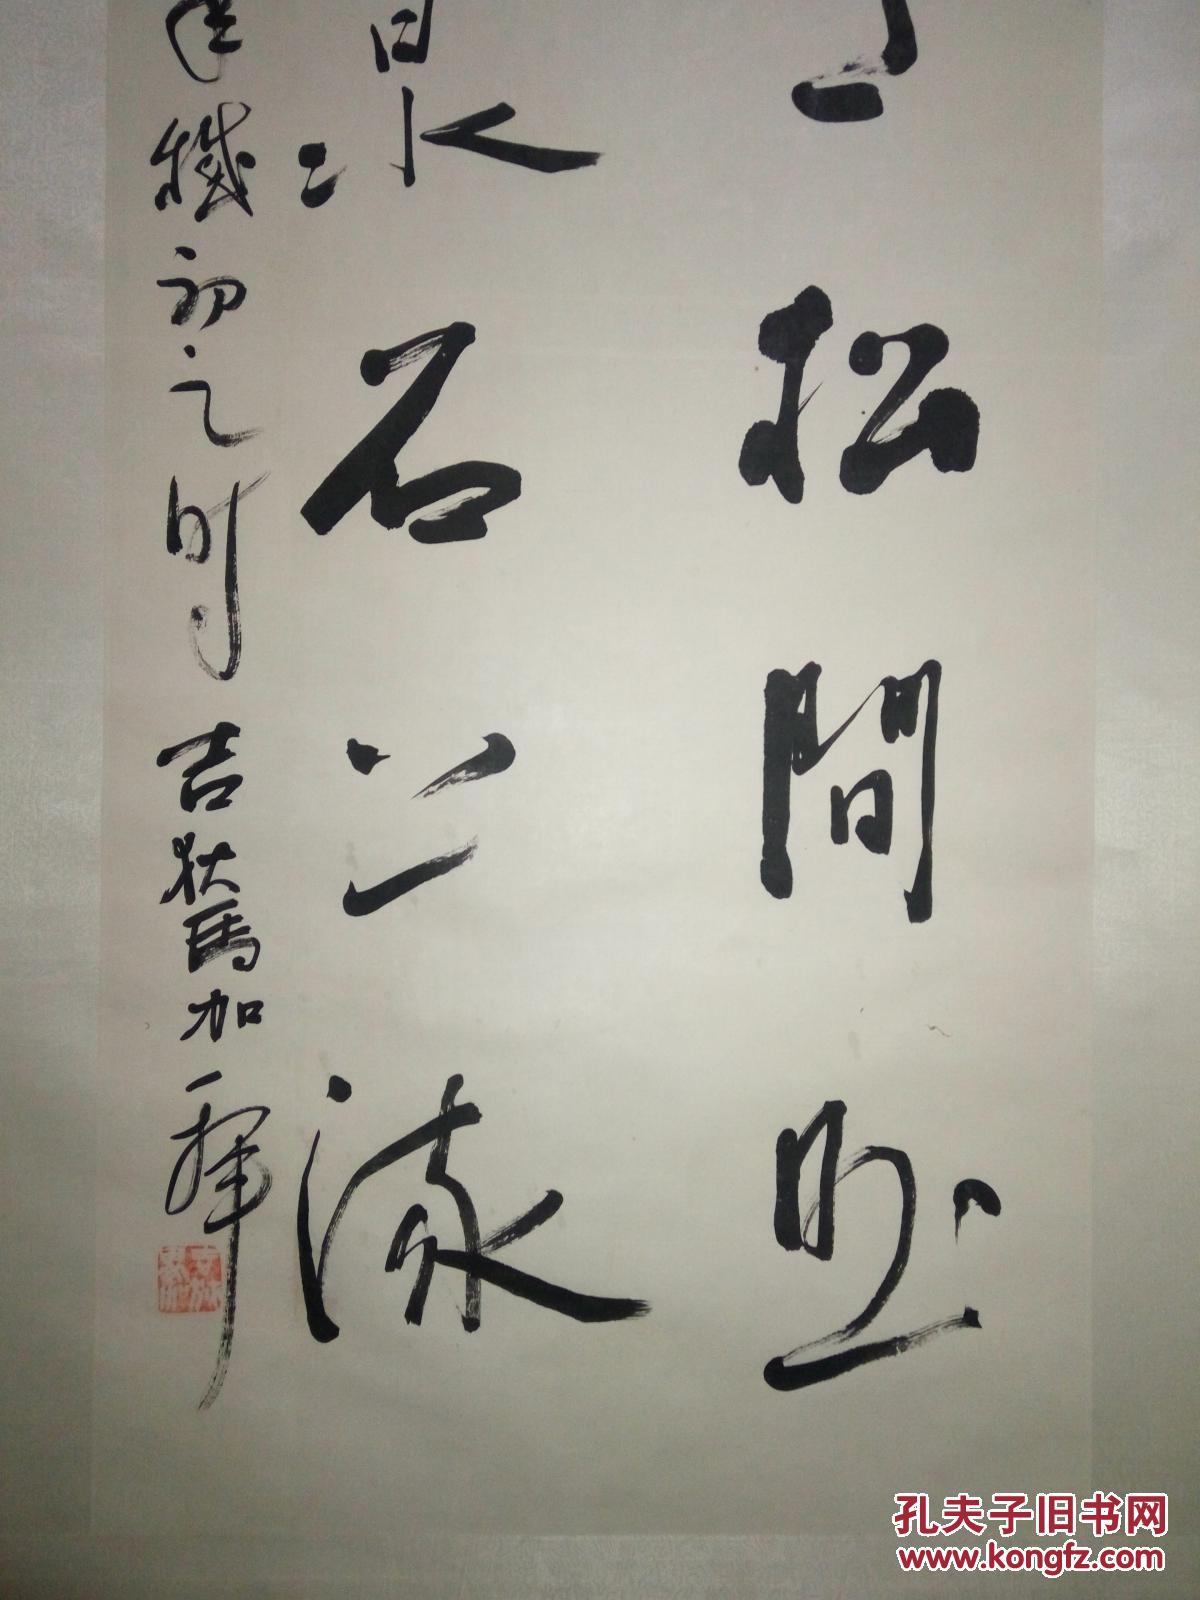 松間照
泉石上流
年 初之時 吉狄馬加
孔夫子旧书网
www.kongfz.com